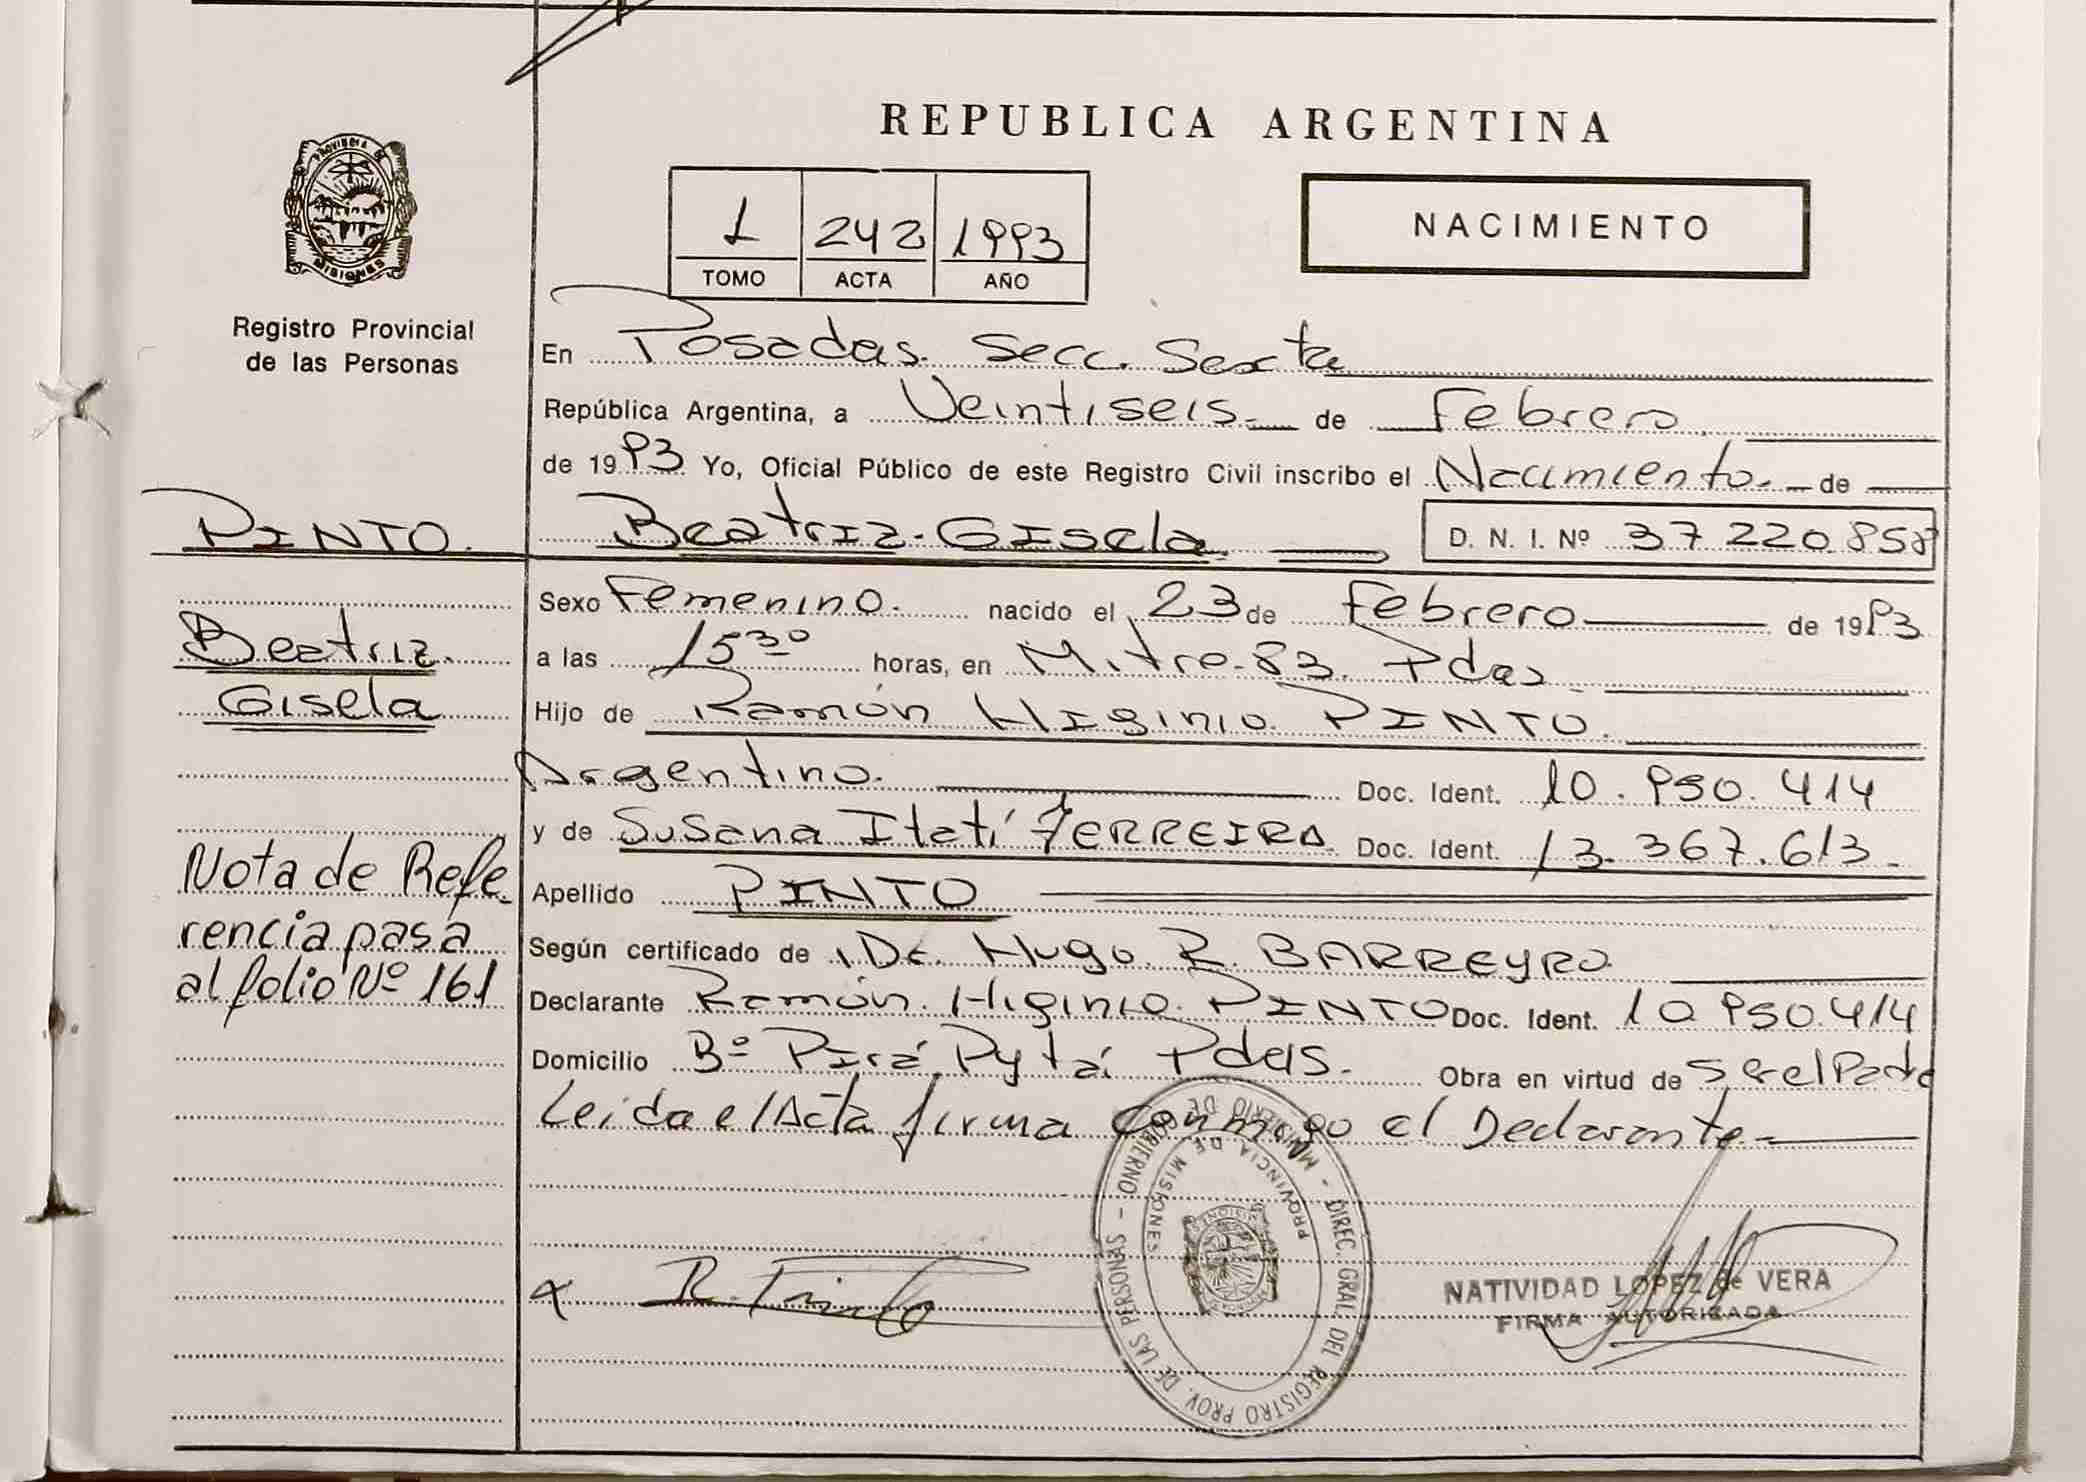 REPUBLICA ARGENTINA
PROVINCIA DE
MISIONES
Registro Provincial
de las Personas
1 242 1993
TOMO ACTA AÑO
NACIMIENTO
En Posadas. Secc. Sexta
República Argentina, a Veintiseis de Febrero
de 1993 Yo, Oficial Público de este Registro Civil inscribo el Nacimiento de
PINTO. Beatriz Gisela D. N. I. Nº 37 220 858
Sexo Femenino. nacido el 23 de Febrero de 1993
a las 15 30 horas, en Mitre 83 Pdas
Hijo de Ramón Higinio PINTO.
Argentino. Doc. Ident. 10.950.414
y de Susana Itatí FERREIRA Doc. Ident. 13.367.613.
Apellido PINTO
Según certificado de Dr. Hugo R. BARREYRO
Declarante Ramón Higinio PINTO Doc. Ident. 10 950.414
Domicilio Bº Pirá Pytá Pdas. Obra en virtud de Ser el Padre
Leida el Acta firma conmigo el Declarante
Beatriz
Gisela
Nota de Refe
rencia pasa
al folio Nº 161
R. Pinto
MINISTERIO DE GOBIERNO - DIREC. GRAL. DEL REGISTRO PROV. DE LAS PERSONAS -
PROVINCIA DE MISIONES
NATIVIDAD LOPEZ de VERA
FIRMA AUTORIZADA